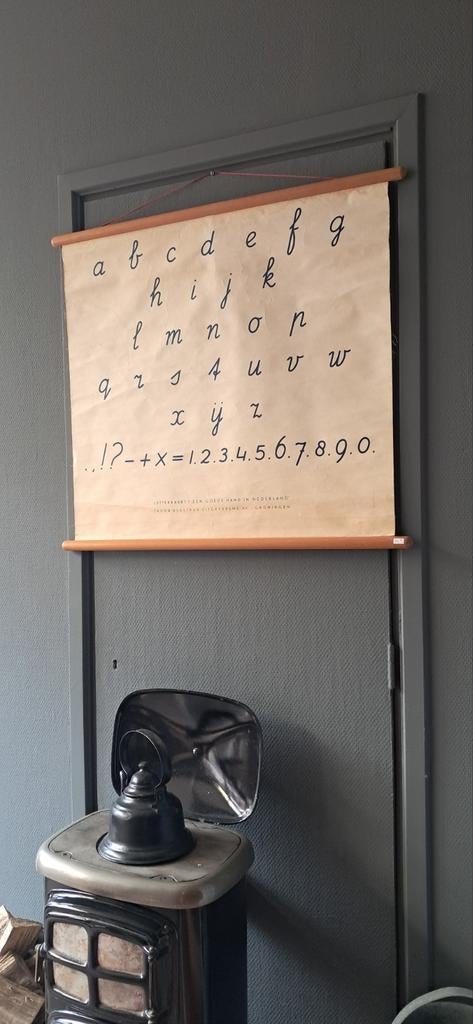 a b c d e f g
h i j k
l m n o p
q r s t u v w
x ij z
.,!?-+x=1.2.3.4.5.6.7.8.9.0.
LETTERKAART: EEN GOEDE HAND IN NEDERLAND
GRONINGEN